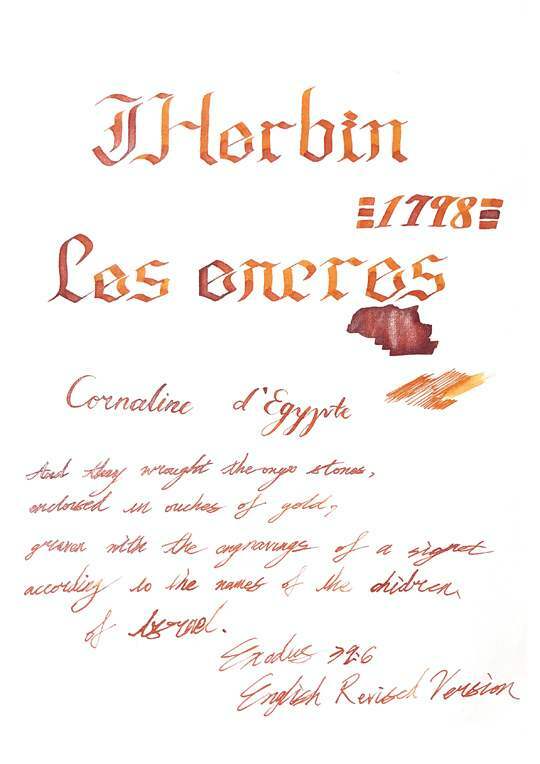 J Herbin
1798
Les encres
Cornaline d'Egypte
And they wrought the onyx stones,
enclosed in ouches of gold,
graven with the engravings of a signet
according to the names of the children
of Israel.
Exodus 39:6
English Revised Version